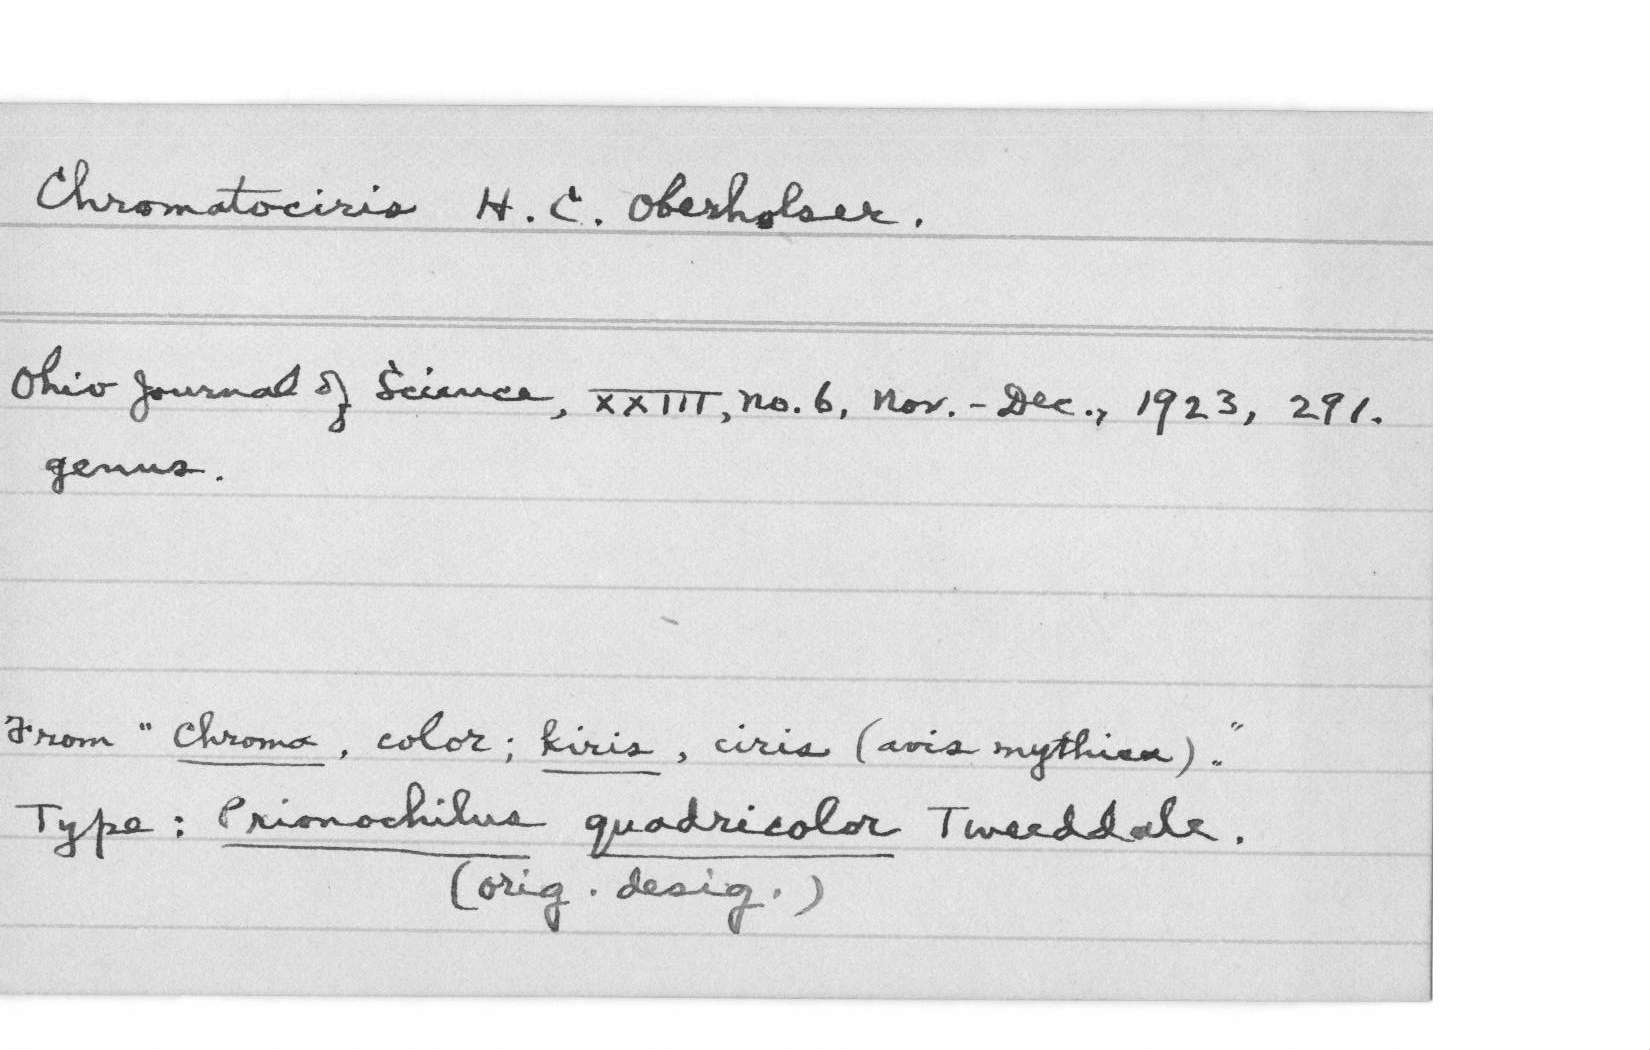 Chromatociris H. C. Oberholser.
Ohio Journal of Science, XXIII, no. 6, Nov. - Dec., 1923, 291.
genus.
From " Chroma, color; kiris, ciris (avis mythica)."
Type: Prionochilus quadricolor Tweeddale.
(orig. desig.)